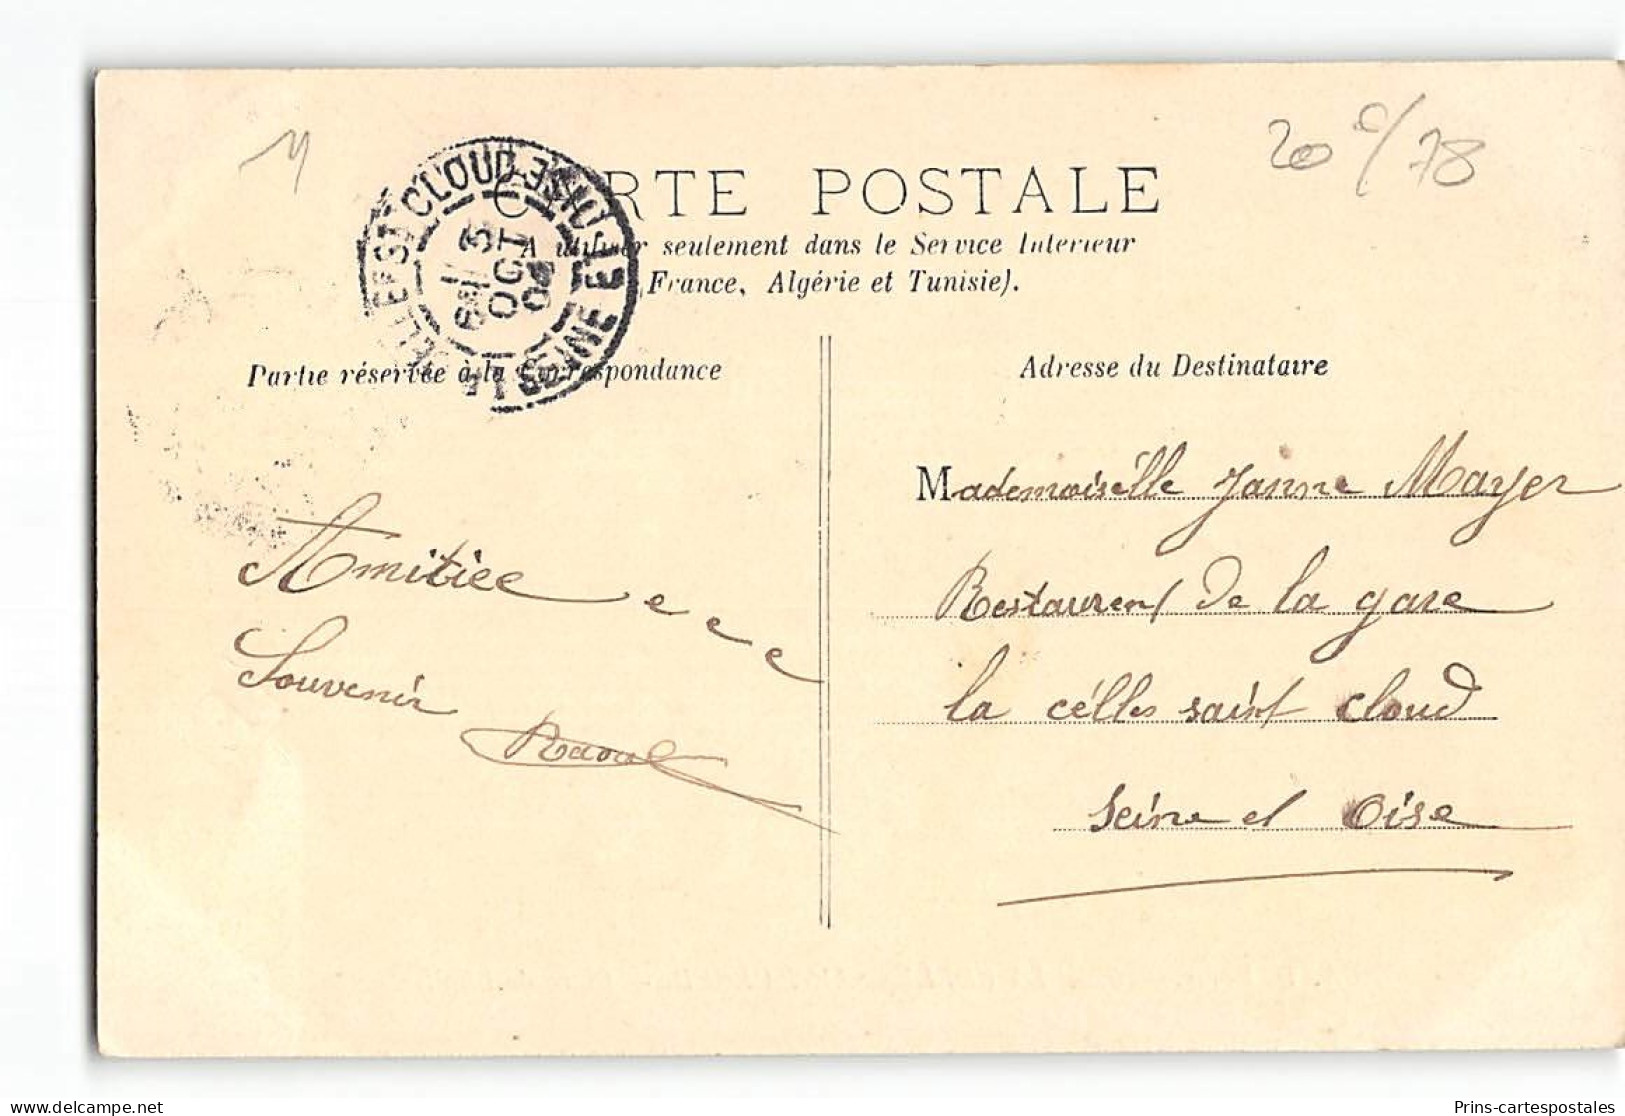 M
20 c/78
CARTE POSTALE
A utiliser seulement dans le Service Intérieur
(France, Algérie et Tunisie).
LA CELLE ST CLOUD
SEINE ET OISE
3
OCT
04
Partie réservée à la Correspondance
Adresse du Destinataire
Mademoisélle Janne Mayer
Restaurent de la gare
la célles saint cloud
Seine et Oise
Amitiee e e e
Souvenir
Raoul
Prins-cartespostales